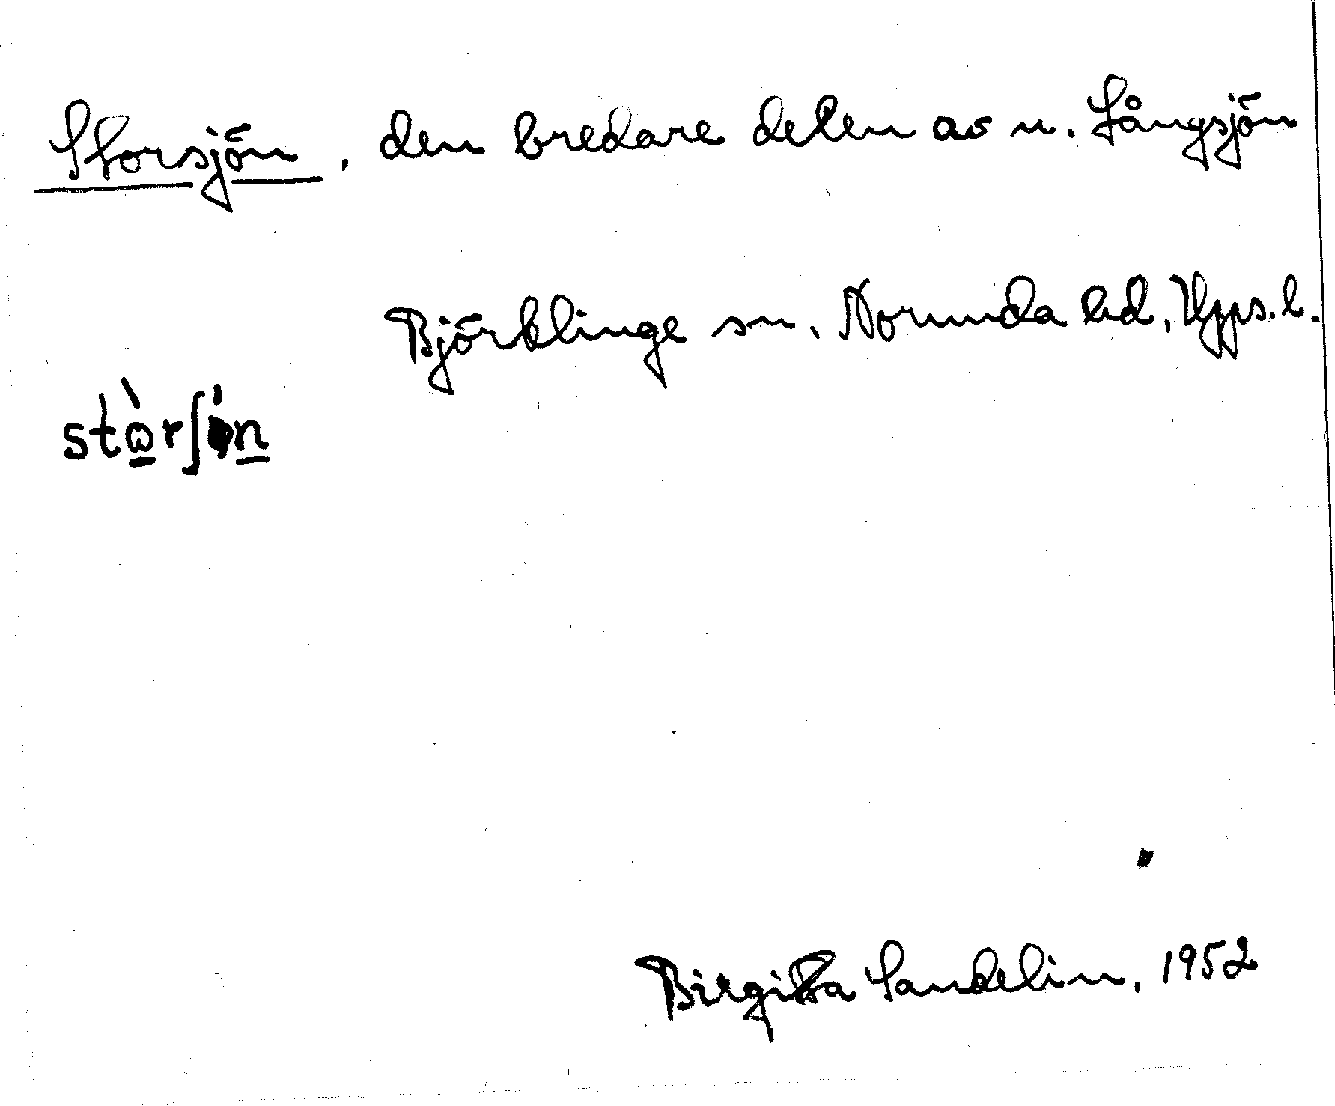 Storsjön, den bredare delen av n. Långsjön
Björklinge sn, Norunda hd, Upps. l.
Birgitta Sandelin, 1952